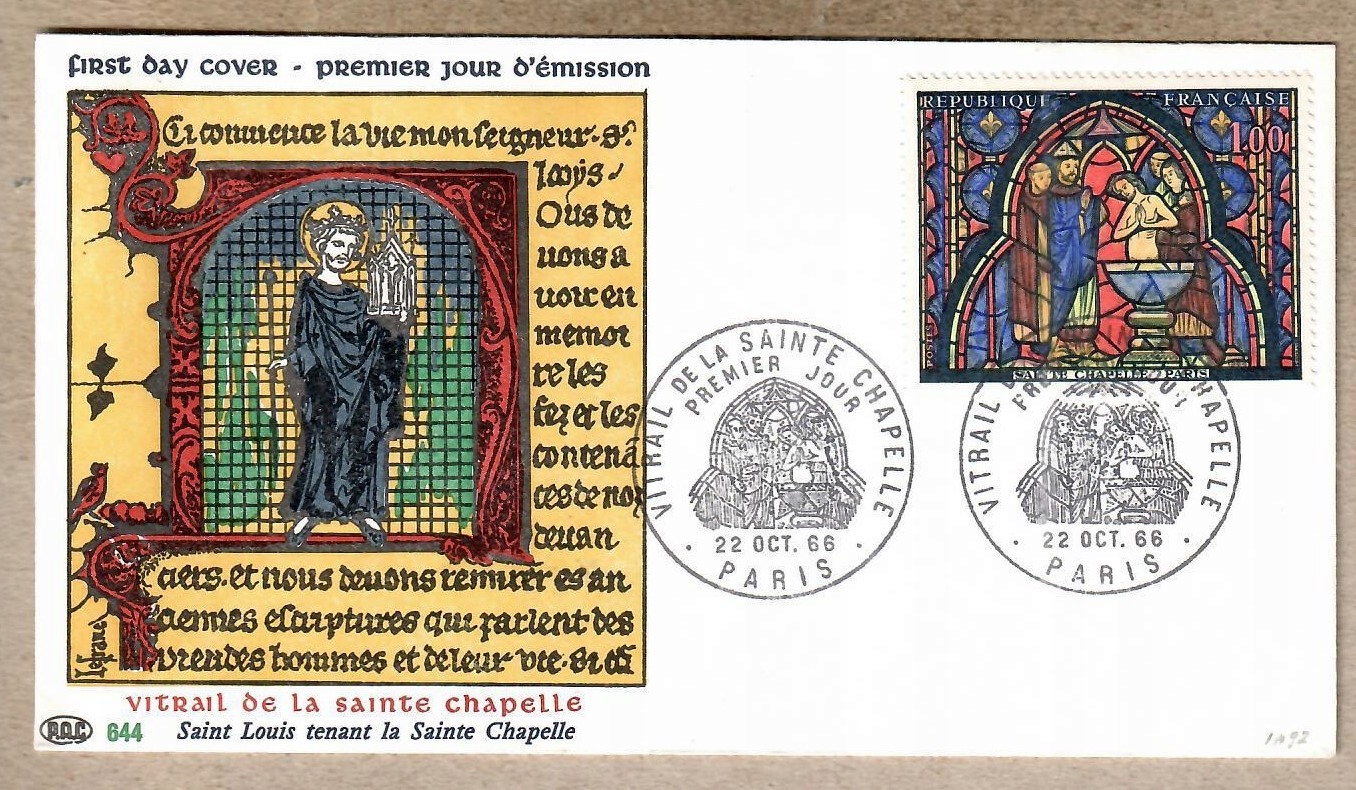 First day cover - premier jour d'émission
Ci comence la vie monseigneur. St
loÿs
Ous de
uons a
uoir en
memoi
re les
fez et les
contenā
ces de noz
deuan
ciers. et nous deuons remirer es an
ciennes escriptures qui parlent des
preudes hommes et de leur vie. Si
Lefranc
vitrail de la sainte chapelle
P.A.C 644 Saint Louis tenant la Sainte Chapelle
REPUBLIQUE FRANÇAISE
1.00
POSTES
SAINTE CHAPELLE - PARIS
VITRAIL DE LA SAINTE CHAPELLE
PREMIER JOUR
22 OCT. 66
PARIS
VITRAIL CHAPELLE
22 OCT. 66
PARIS